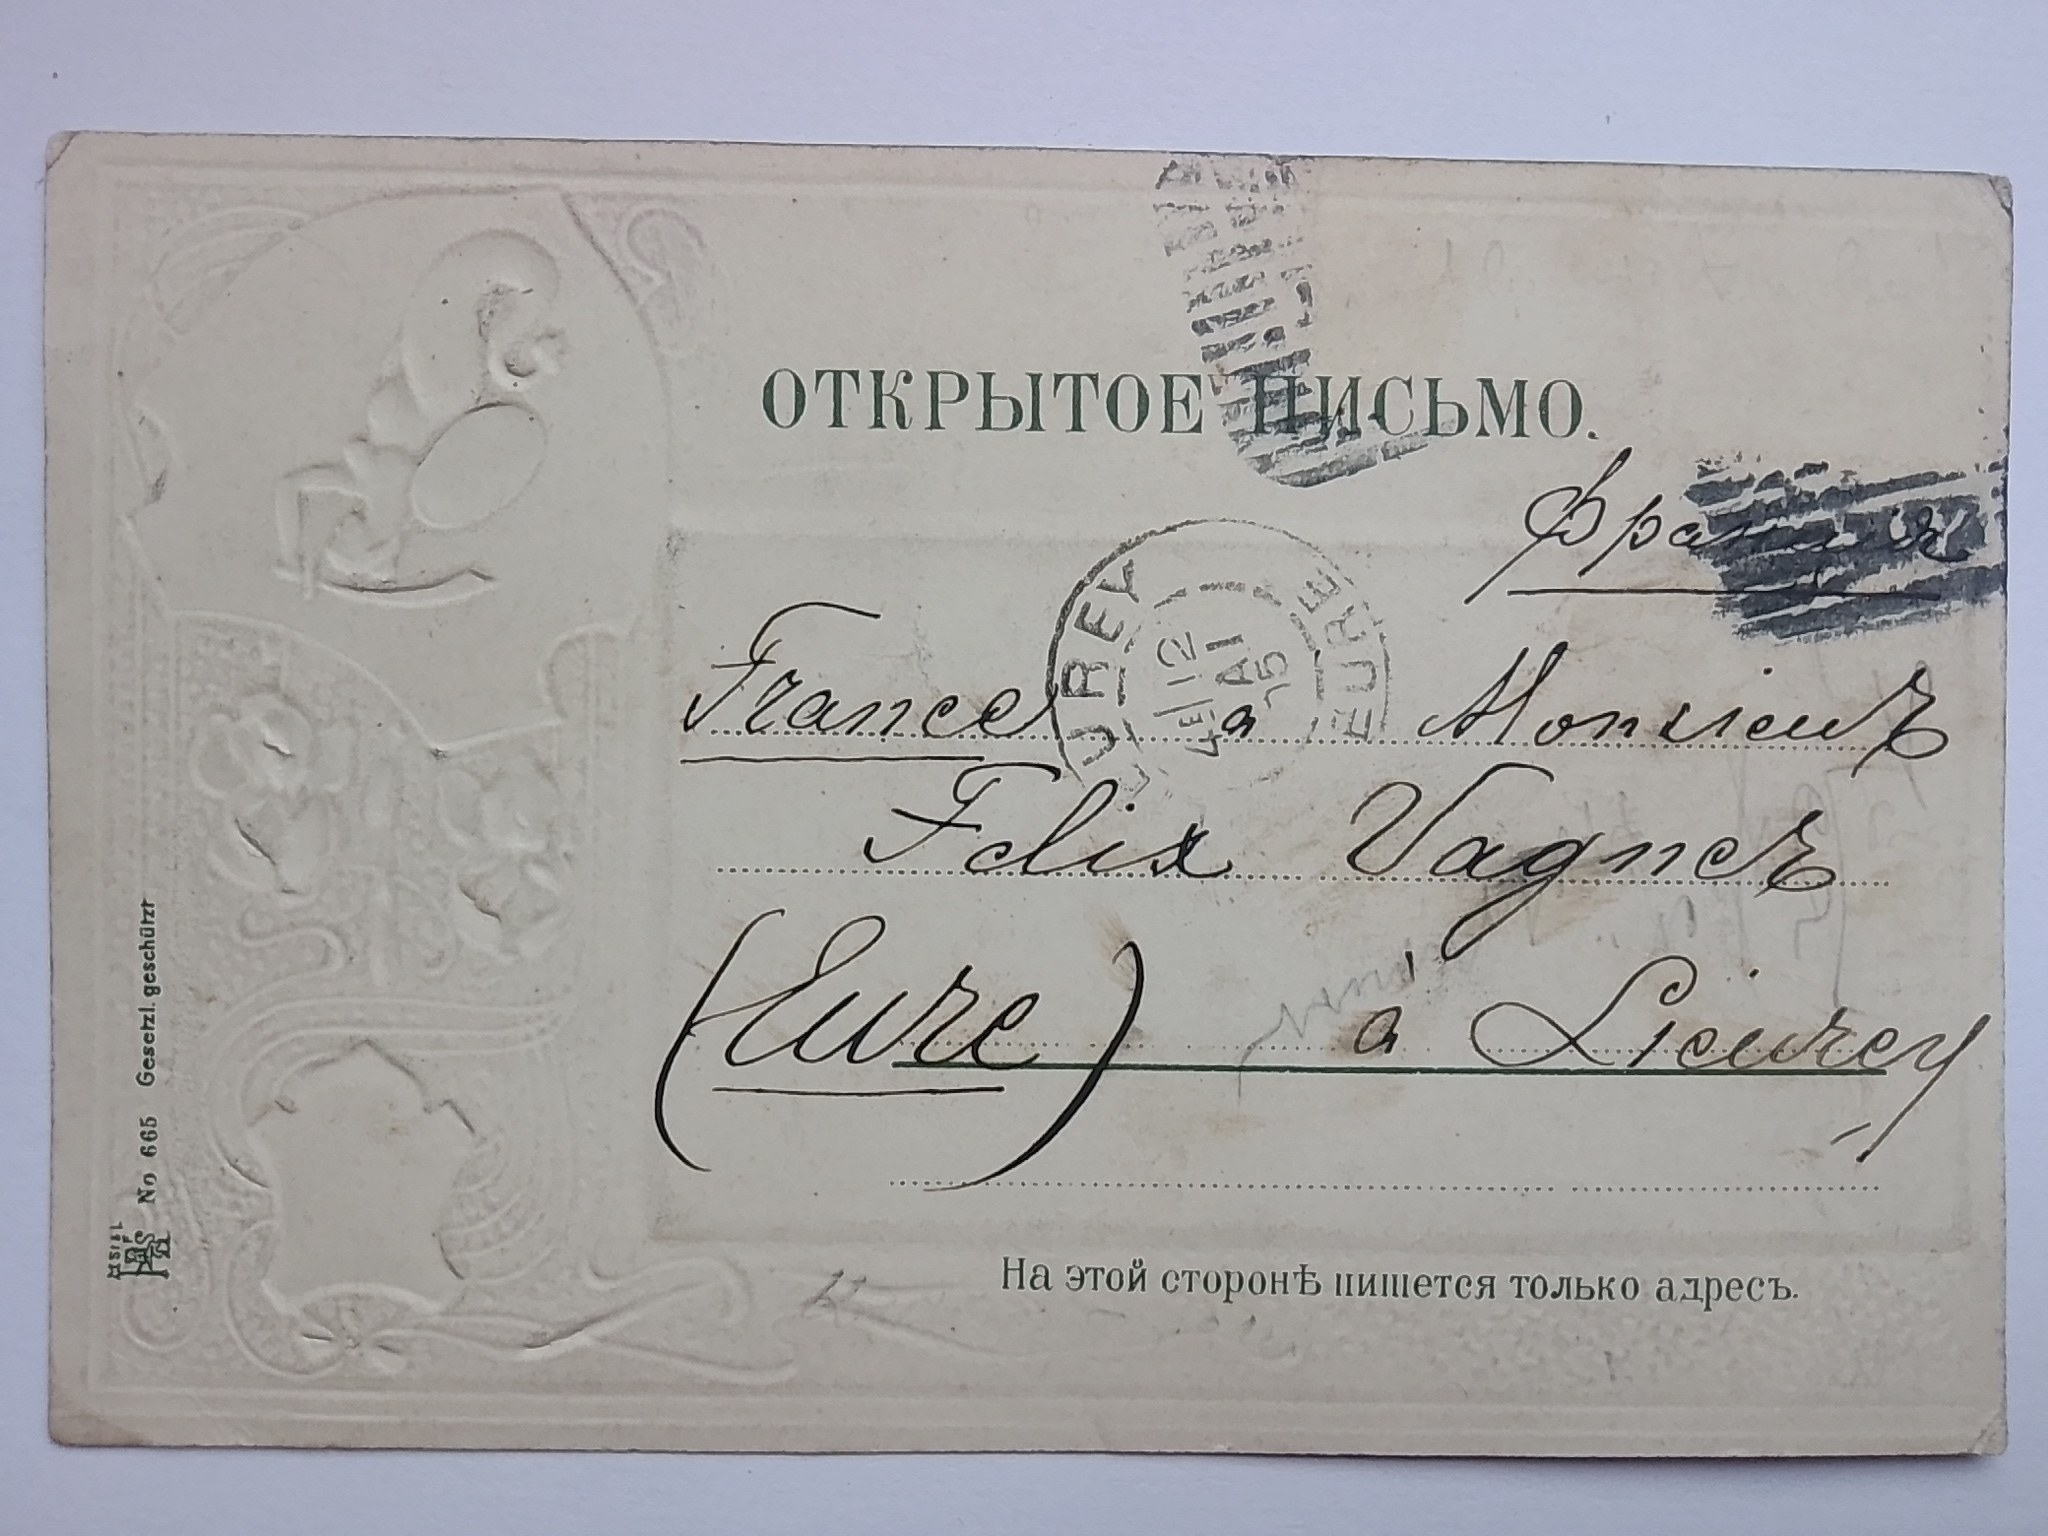 ОТКРЫТОЕ ПИСЬМО.
Франція
France a Monsieur
Felix Vagner
(Eure) a Lieurey
На этой сторонѣ пишется только адресъ.
No 665 Gesetzl. geschützt
LIEUREY EURE
4E 12
15